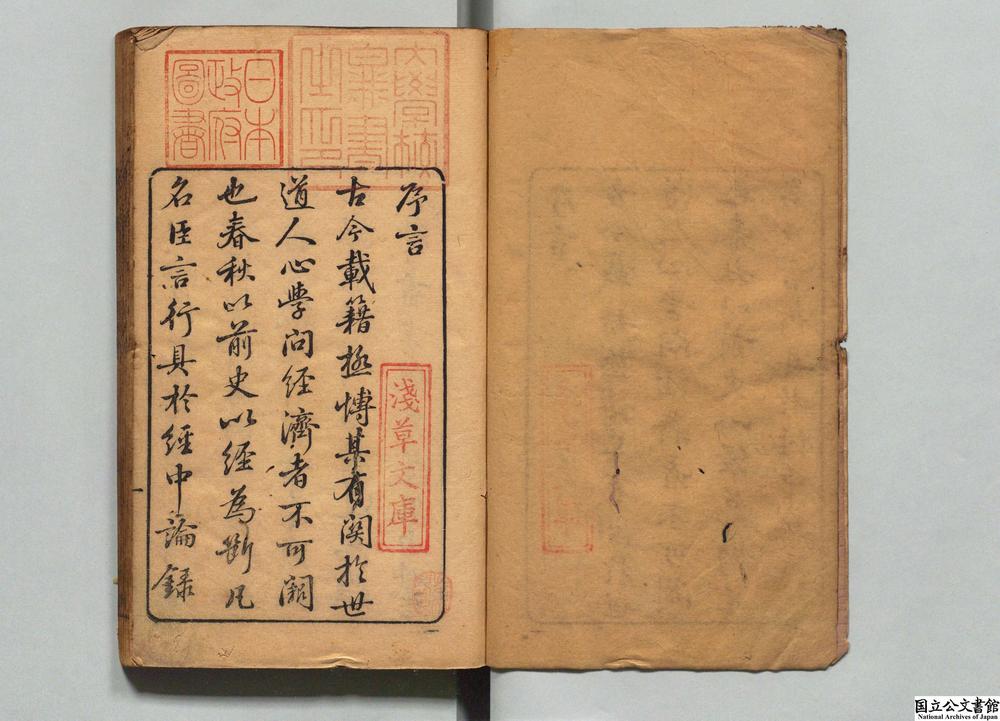 序言
古今載籍極愽其有関於世
道人心學问経濟者不可闕
也春秋以前史以経為断凡
名臣言行具於經中論録
日本
政府
圖書
淺草文庫
国立公文書館
National Archives of Japan